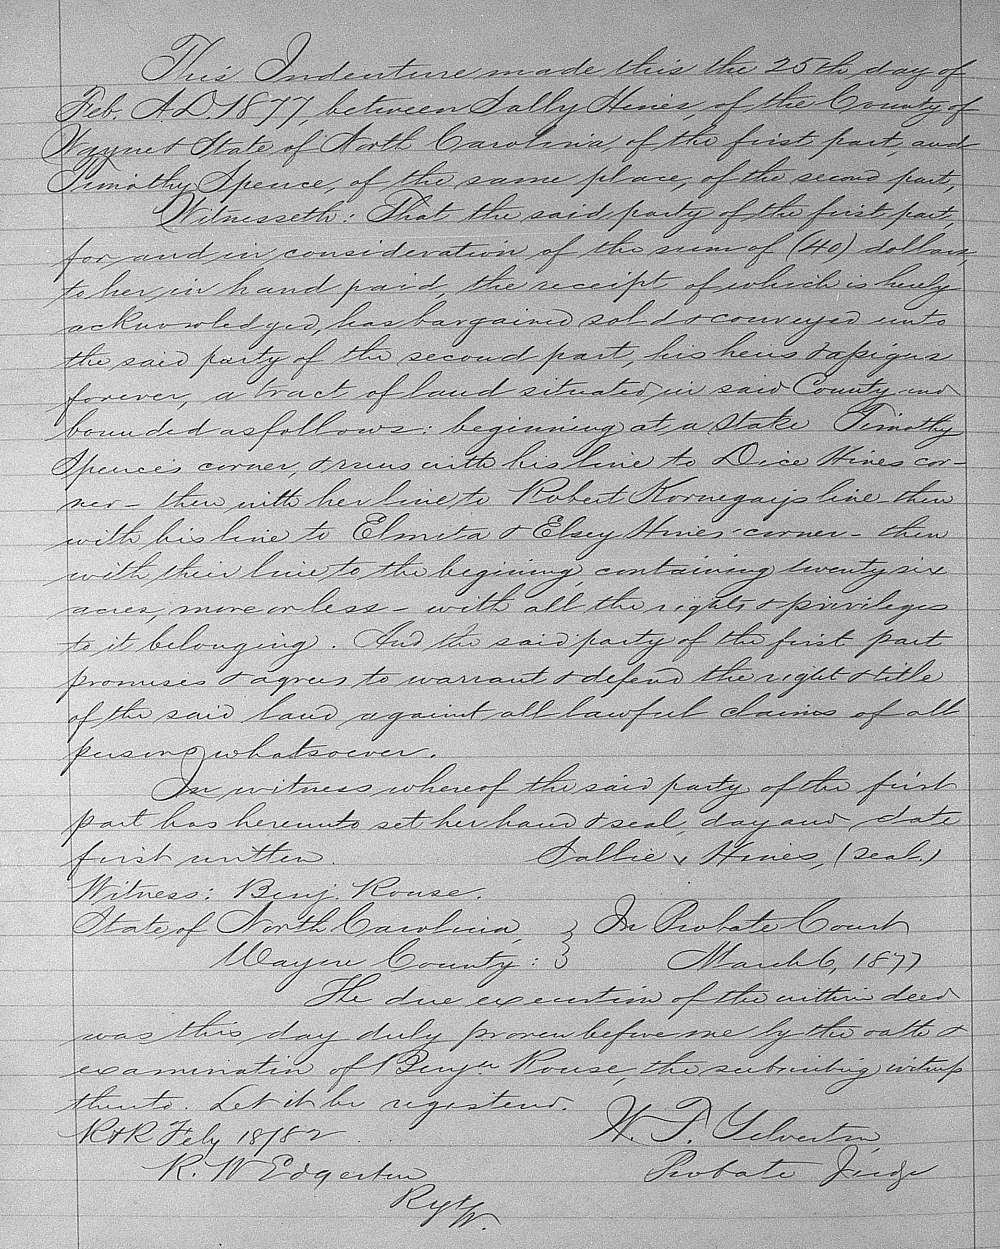 This Indenture made this the 25th day of
Feb. A.D. 1877, between Sally Hines, of the County of
Wayne & State of North Carolina, of the first part, and
Timothy Spence, of the same place, of the second part,
Witnesseth: That the said party of the first part,
for and in consideration of the sum of (40) dollars,
to her in hand paid, the receipt of which is hereby
acknowledged, has bargained sold & conveyed unto
the said party of the second part, his heirs & assigns
forever, a tract of land situated in said County and
bounded as follows: beginning at a stake Timothy
Spence's corner, & runs with his line to Dice Hines cor-
ner - then with her line to Robert Kornegay's line then
with his line to Elmita & Elsey Hines' corner - then
with their line to the begining, containing twenty six
acres, more or less - with all the rights & privileges
to it belonging. And the said party of the first part
promises & agrees to warrant & defend the right & title
of the said land against all lawful claims of all
persons whatsoever.
In witness whereof the said party of the first
part has hereunto set her hand & seal, day and date
first written. Sallie x Hines, (seal.)
Witness: Benj. Rouse.
State of North Carolina, } In Probate Court
Wayne County: } March 6, 1877
The due execution of the within deed
was this day duly proven before me by the oath &
examination of Benjn Rouse, the subscribing witness
thereto. Let it be registered.
R&R Feby 18/82 W. T. Yelverton
R. W Edgerton Probate Judge